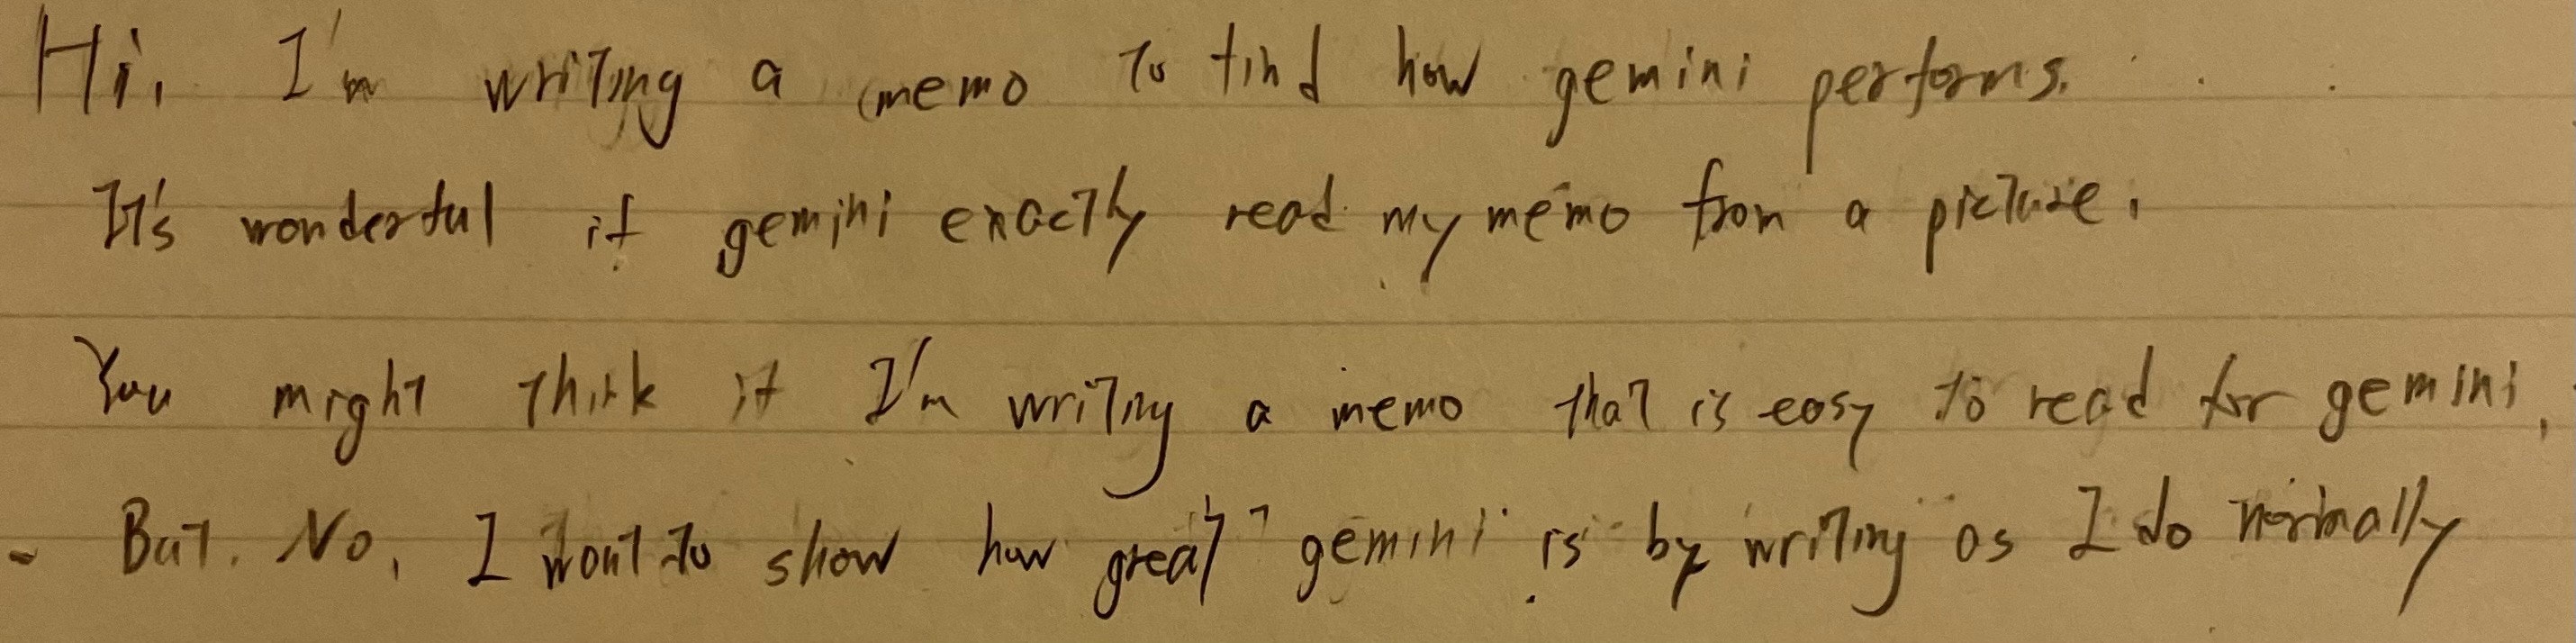 Hi, I'm writing a memo to find how gemini performs.
It's wonderful if gemini exactly read my memo from a picture.
You might think if I'm writing a memo that is easy to read for gemini,
But. No, I want to show how great gemini is by writing as I do normally